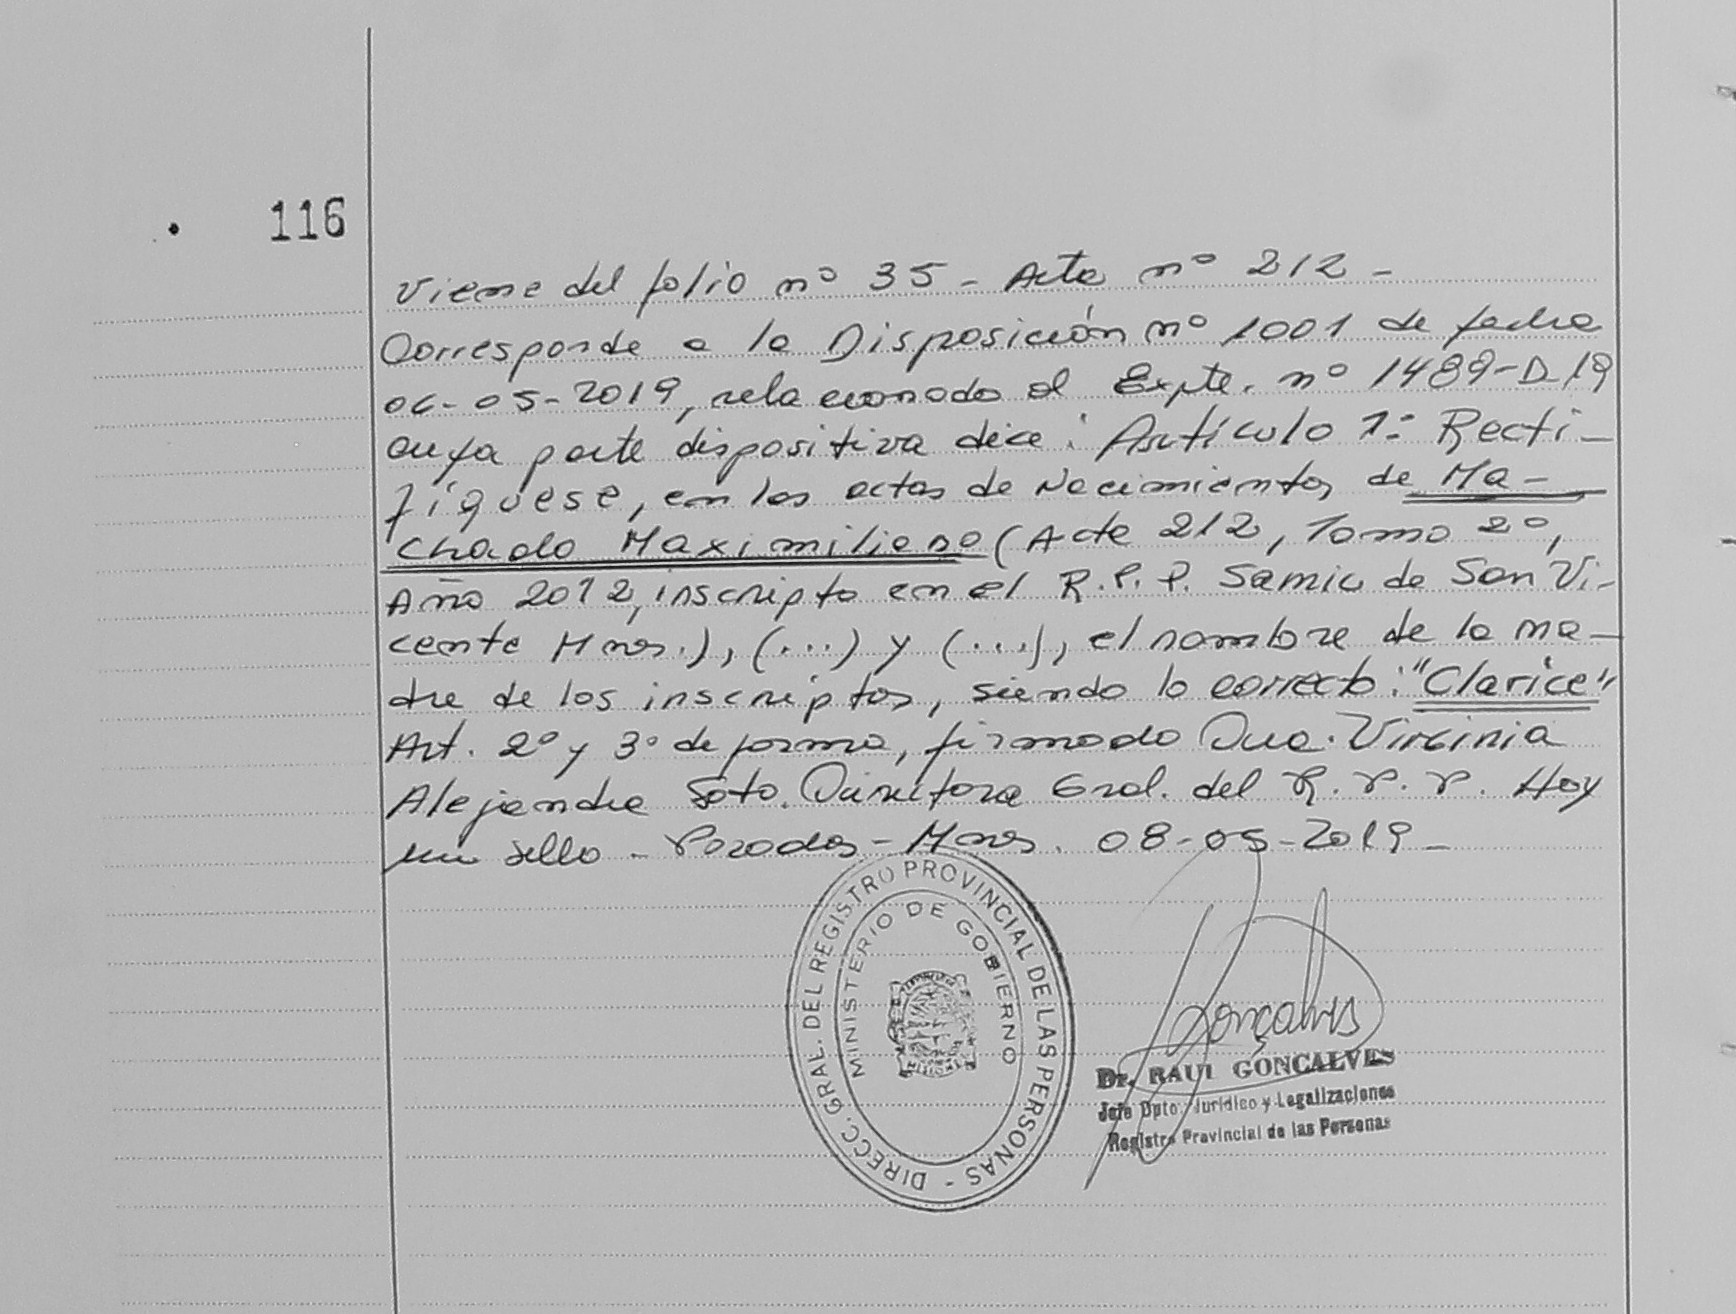 116
Viene del folio nº 35 - Acta nº 212 -
Corresponde a la Disposición nº 1001 de fecha
06-05-2019, relacionado al Expte. nº 1489-D-19
cuya parte dispositiva dice: Artículo 1º: Recti-
fíquese, en las actas de Nacimientos de Ma-
chado Maximiliano (Acta 212, Tomo 2º,
Año 2012, inscripto en el R.P.P. Samic de San Vi-
cente Mnes.), (...) y (...), el nombre de la ma-
dre de los inscriptos, siendo lo correcto: "Clarice"
Art. 2º y 3º de forma, firmado Dra. Virginia
Alejandra Soto. Directora Gral. del R.P.P. Hay
un sello - Posadas - Mnes. 08-05-2019 -
DIRECC. GRAL. DEL REGISTRO PROVINCIAL DE LAS PERSONAS -
MINISTERIO DE GOBIERNO
MISIONES
Gonçalves
Dr. RAUL GONCALVES
Jefe Dpto. Jurídico y Legalizaciones
Registro Provincial de las Personas